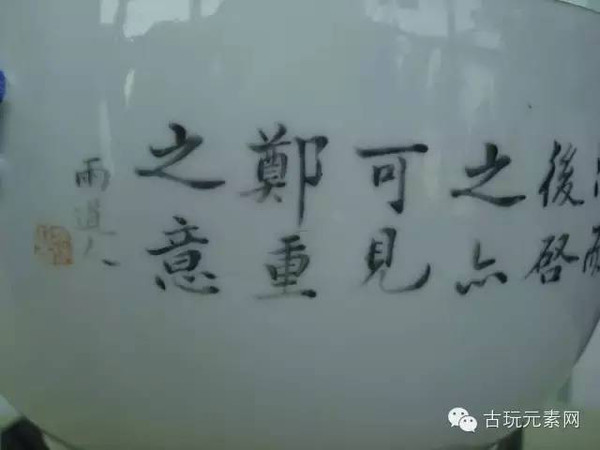 而
後啓
之亦
可見
鄭重
之意
雨道人
古玩元素网